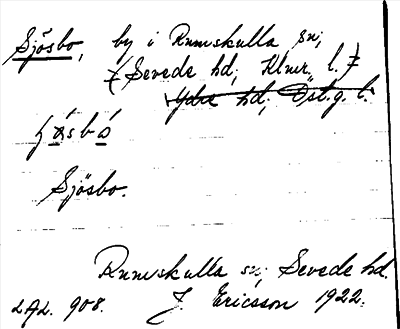 Sjösbo, by i Rumskulla sn,
(Sevede hd, Klmr l.)
Ydre hd, Östg. l.
Sjösbo.
Rumskulla sn, Sevede hd.
LAL. 908. J. Ericsson 1922.